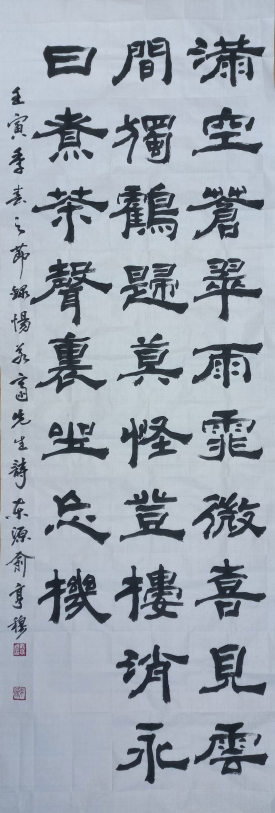 滿空蒼翠雨霏微喜見雲
間獨鶴歸莫怪登樓消永
日煮茶聲裏坐忘機
壬寅季春之節錄惕若齋先生詩 東源俞亨穆